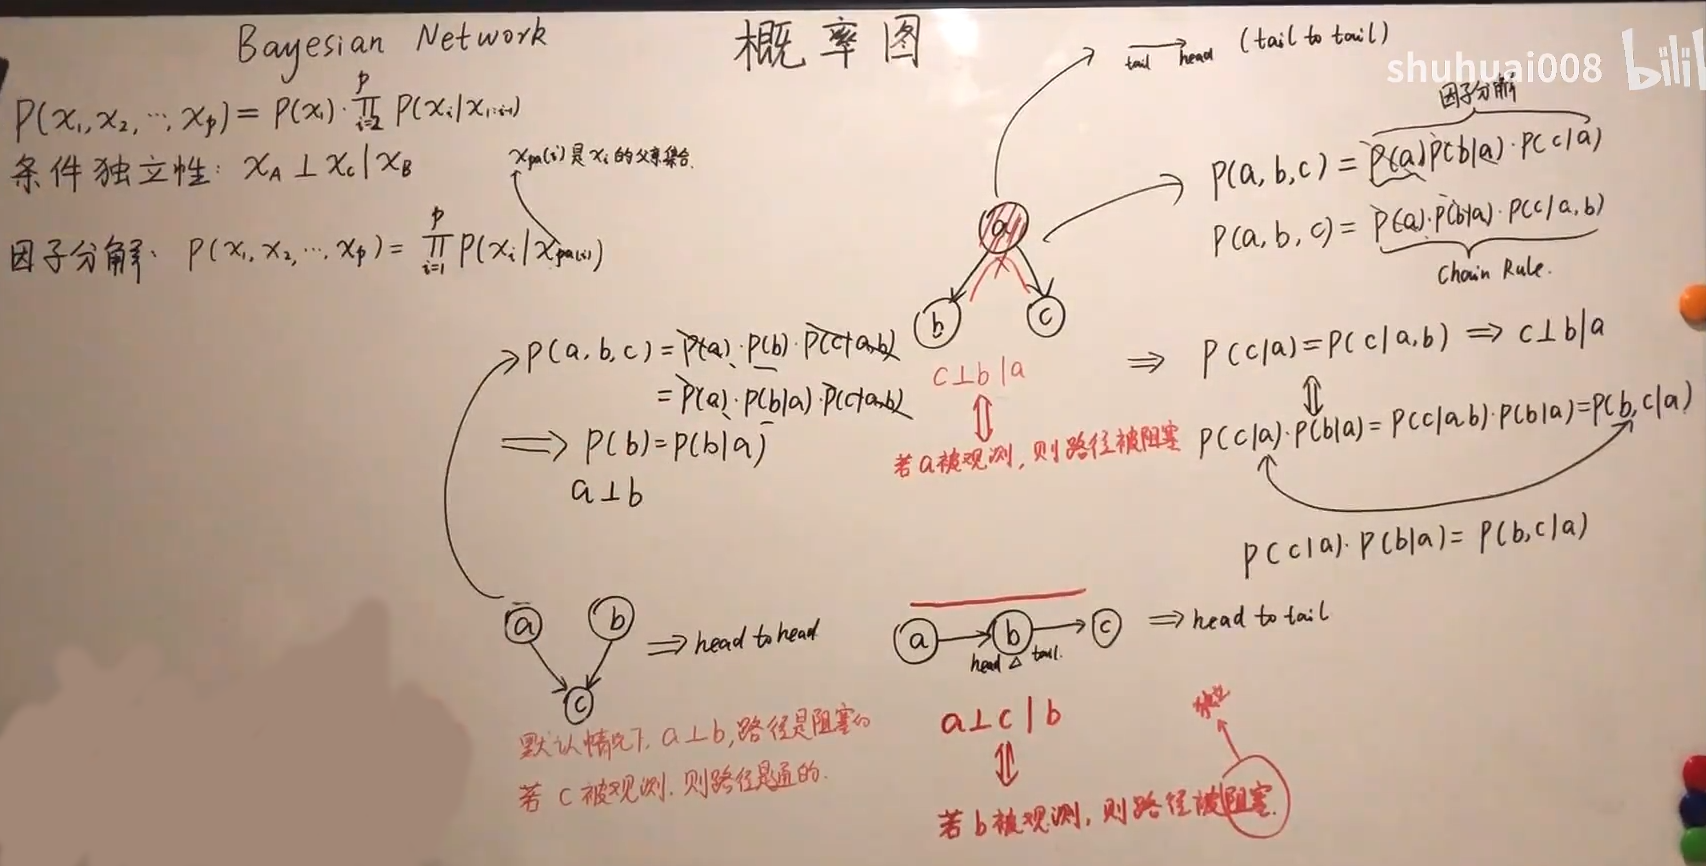 Bayesian Network
概率图
shuhuai008 bili
P(x₁,x₂,…,xₚ) = P(x₁)·∏ᵢ₌₂ᵖ P(xᵢ|x₁:ᵢ₋₁)
条件独立性: x_A ⊥ x_C | x_B
x_pa(i) 是 xᵢ 的父亲集合.
因子分解: P(x₁,x₂,…,xₚ) = ∏ᵢ₌₁ᵖ P(xᵢ|x_pa(i))
tail → head (tail to tail)
因子分解
P(a,b,c) = P(a)P(b|a)·P(c|a)
P(a,b,c) = P(a)·P(b|a)·P(c|a,b)
Chain Rule.
a
b
c
c⊥b|a
⇕
若a被观测,则路径被阻塞
⇒ P(c|a)=P(c|a,b) ⇒ c⊥b|a
⇕
P(c|a)·P(b|a)=P(c|a,b)·P(b|a)=P(b,c|a)
P(c|a)·P(b|a)=P(b,c|a)
P(a,b,c) = P(a)·P(b)·P(c|a,b)
= P(a)·P(b|a)·P(c|a,b)
⇒ P(b)=P(b|a)
a⊥b
a b ⇒ head to head
c
默认情况下, a⊥b,路径是阻塞的
若c被观测,则路径是通的.
a → b → c ⇒ head to tail
head △ tail.
a⊥c|b
⇕
独立
若b被观测,则路径被阻塞.